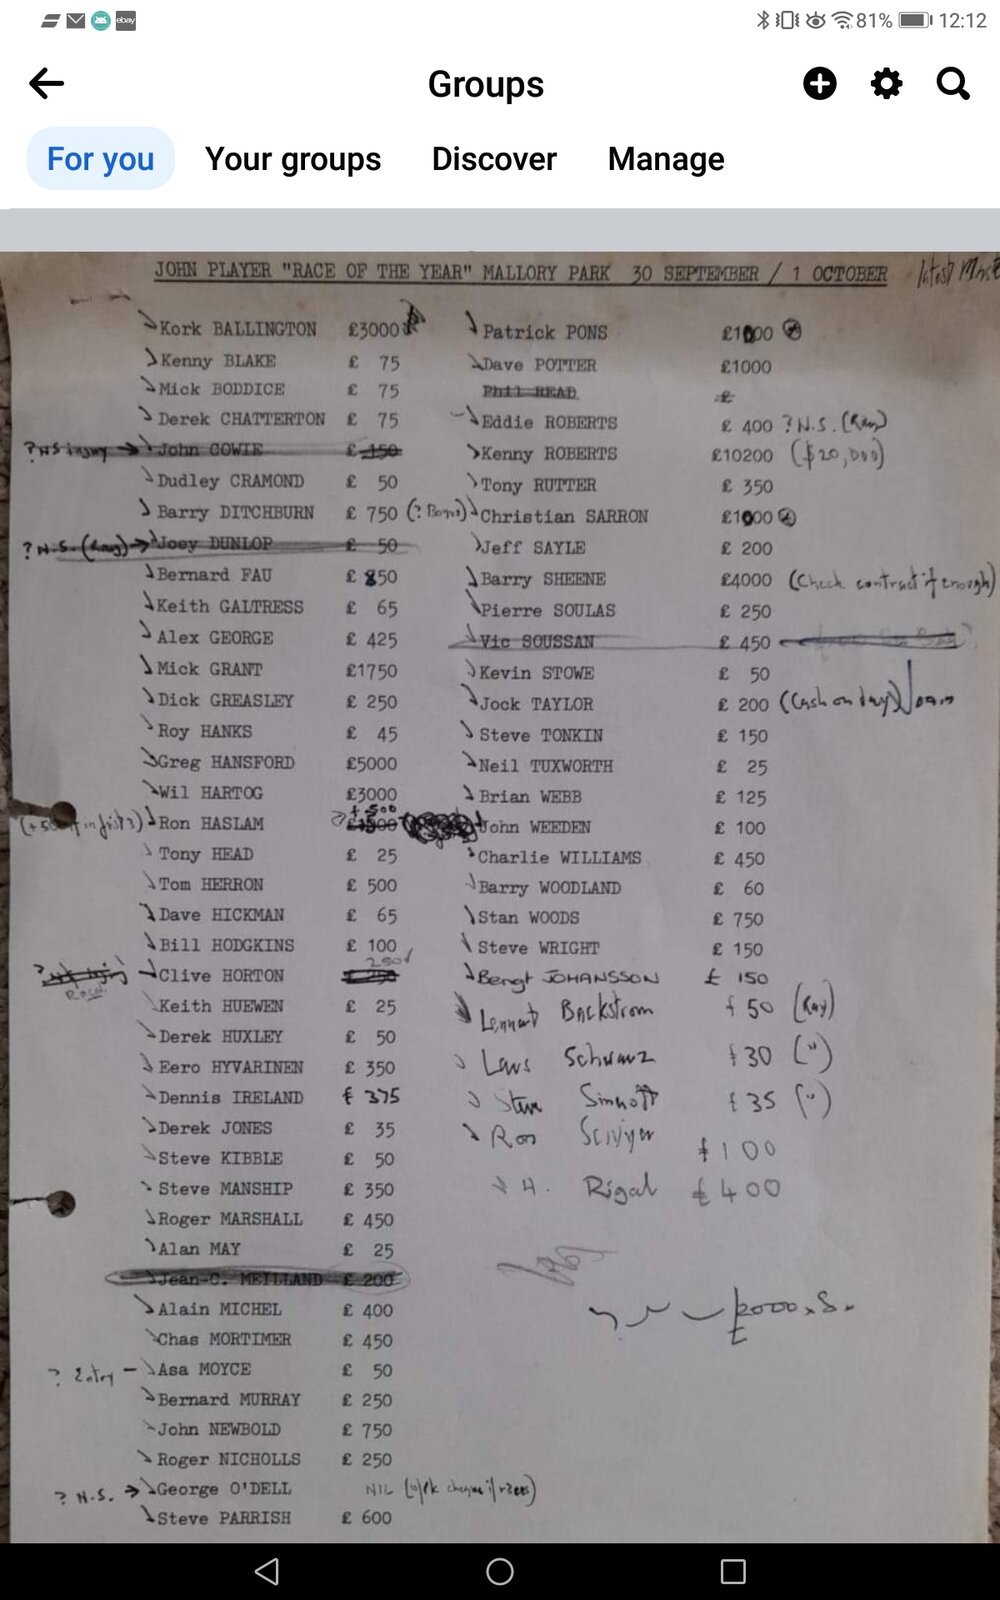 ebay
81% 12:12
Groups
For you Your groups Discover Manage
JOHN PLAYER "RACE OF THE YEAR" MALLORY PARK 30 SEPTEMBER / 1 OCTOBER latest
Kork BALLINGTON £3000
Kenny BLAKE £ 75
Mick BODDICE £ 75
Derek CHATTERTON £ 75
? NS injury John COWIE £ 150
Dudley CRAMOND £ 50
Barry DITCHBURN £ 750
? N.S. (Ray) Joey DUNLOP £ 50
Bernard FAU £ 850
Keith GALTRESS £ 65
Alex GEORGE £ 425
Mick GRANT £1750
Dick GREASLEY £ 250
Roy HANKS £ 45
Greg HANSFORD £5000
Wil HARTOG £3000
+ 500
Ron HASLAM £1500
Tony HEAD £ 25
Tom HERRON £ 500
Dave HICKMAN £ 65
Bill HODGKINS £ 100
250
Clive HORTON £ 250
Keith HUEWEN £ 25
Derek HUXLEY £ 50
Eero HYVARINEN £ 350
Dennis IRELAND £ 375
Derek JONES £ 35
Steve KIBBLE £ 50
Steve MANSHIP £ 350
Roger MARSHALL £ 450
Alan MAY £ 25
Jean-C. MEILLAND £ 200
Alain MICHEL £ 400
Chas MORTIMER £ 450
? Entry - Asa MOYCE £ 50
Bernard MURRAY £ 250
John NEWBOLD £ 750
Roger NICHOLLS £ 250
? N.S. George O'DELL NIL
Steve PARRISH £ 600
Patrick PONS £1000
Dave POTTER £1000
Phil READ £
Eddie ROBERTS £ 400 ? N.S. (Ray)
Kenny ROBERTS £10200 ($20,000)
Tony RUTTER £ 350
Christian SARRON £1000
Jeff SAYLE £ 200
Barry SHEENE £4000 (Check contract if enough)
Pierre SOULAS £ 250
Vic SOUSSAN £ 450
Kevin STOWE £ 50
Jock TAYLOR £ 200 (Cash on day)
Steve TONKIN £ 150
Neil TUXWORTH £ 25
Brian WEBB £ 125
John WEEDEN £ 100
Charlie WILLIAMS £ 450
Barry WOODLAND £ 60
Stan WOODS £ 750
Steve WRIGHT £ 150
Bengt JOHANSSON £ 150
Lennart Backstrom £50 (Ray)
Lars Schwarz £30 (")
Steve Sinnott £35 (")
Ron £100
H. Rigal £400